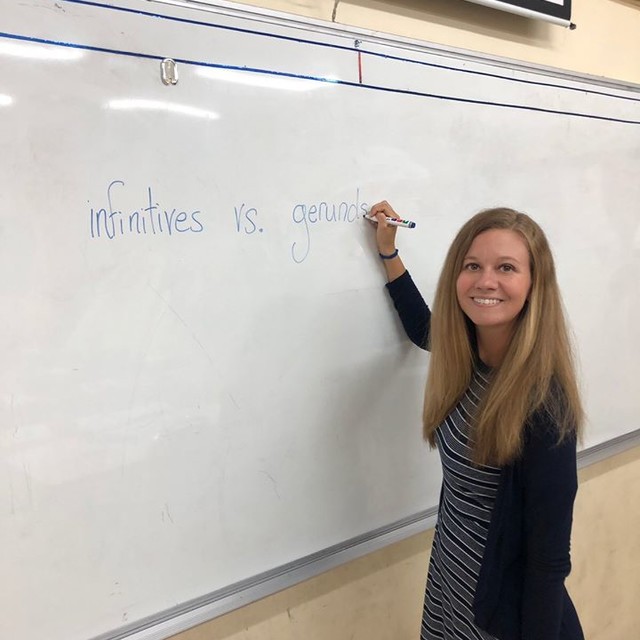 infinitives vs. gerunds